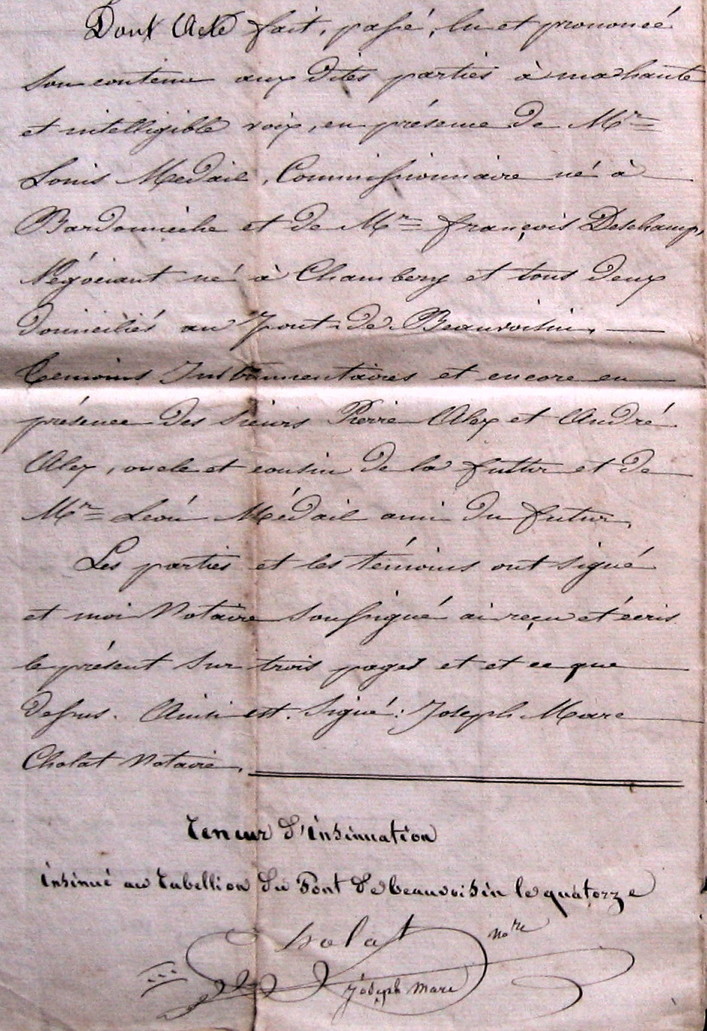 Dont Acte fait, passé, lu et prononcé
son contenu aux dites parties à ma haute
et intelligible voix, en présence de Mr
Louis Medail, Commissionnaire né à
Bardonnèche et de Mr françois Deschamp,
Négociant né à Chambery et tous deux
domiciliés au Pont-de-Beauvoisin,
temoins Instrumentaires et encore en
présence des sieurs Pierre Alex et André
Alex, oncle et cousin de la future et de
Mr Léon Médail ami du futur.
Les parties et les témoins ont signé
et moi Notaire soussigné ai reçu et écris
le présent sur trois pages et et ce que
dessus. Ainsi est. Signé: Joseph Marc
Cholat Notaire.
Teneur d'insinuation
insinué au tabellion du Pont de beauvoisin le quatorze
Cholat nore
joseph marc